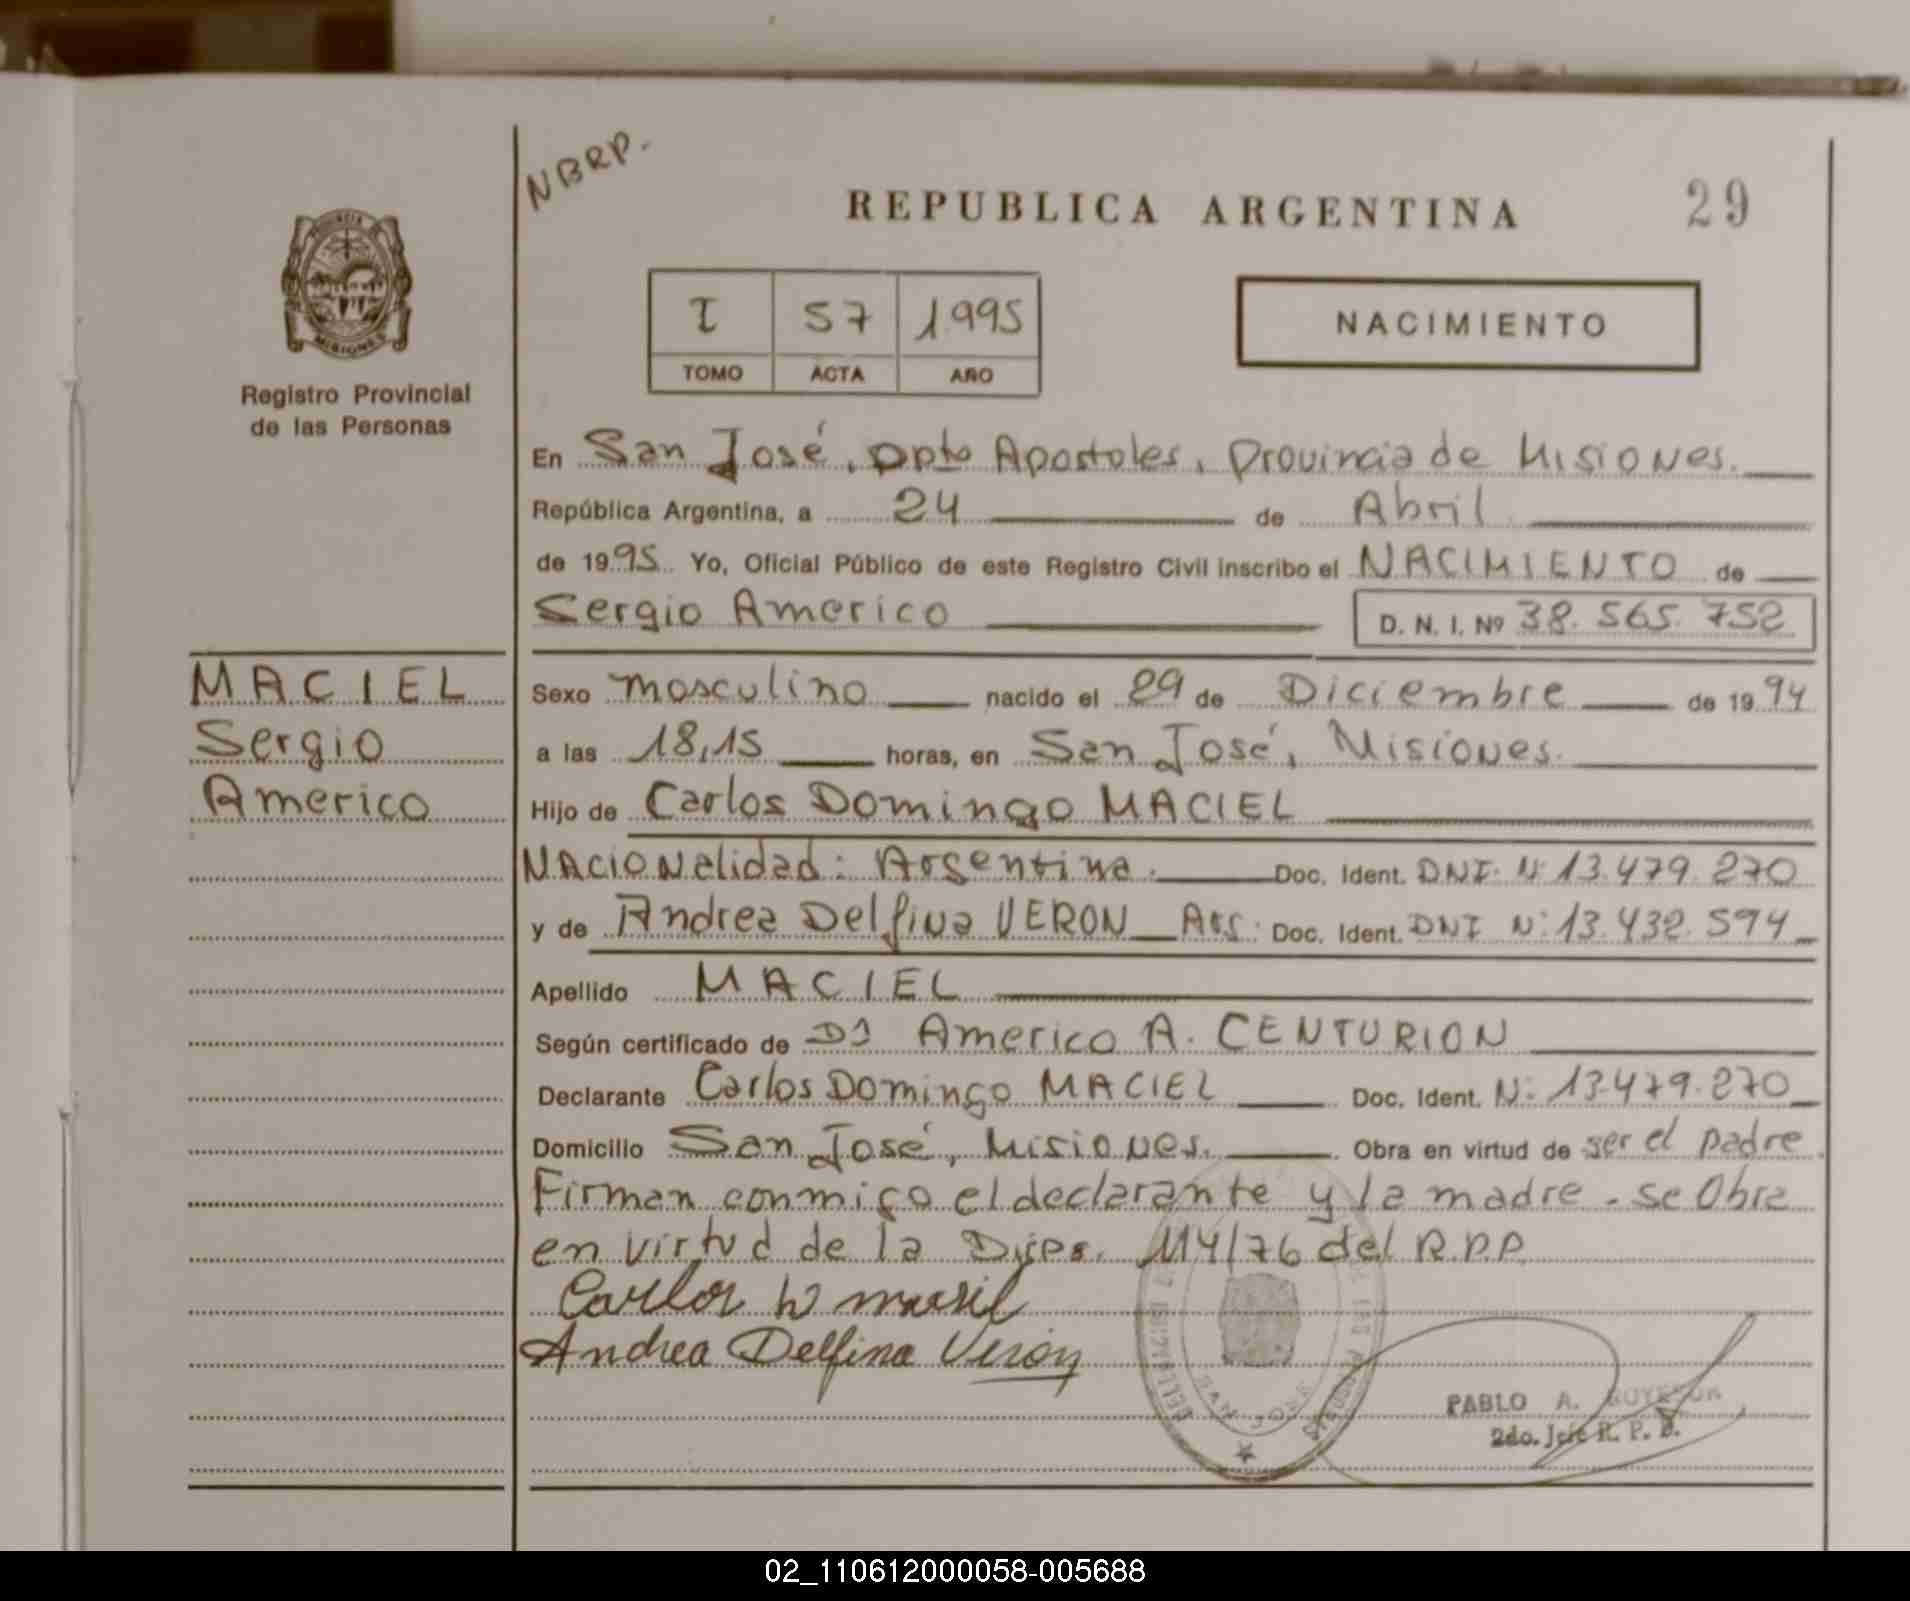 NBRP.
REPUBLICA ARGENTINA
29
PROVINCIA
MISIONES
Registro Provincial
de las Personas
I 57 1995
TOMO ACTA AÑO
NACIMIENTO
En San José, Dpto Apostoles, Provincia de Misiones.
República Argentina, a 24 de Abril
de 1995 Yo, Oficial Público de este Registro Civil inscribo el NACIMIENTO de
Sergio Americo D. N. I. Nº 38.565.752
MACIEL
Sergio
Americo
Sexo masculino nacido el 29 de Diciembre de 1994
a las 18,15 horas, en San José, Misiones.
Hijo de Carlos Domingo MACIEL
Nacionalidad: Argentina. Doc. Ident. DNI. N: 13.479.270
y de Andrea Delfina VERON Arg. Doc. Ident. DNI N: 13.432.594
Apellido MACIEL
Según certificado de Americo A. CENTURION
Declarante Carlos Domingo MACIEL Doc. Ident. N: 13.479.270
Domicilio San José, Misiones. Obra en virtud de ser el padre.
Firman conmigo el declarante y la madre - se Obra
en virtud de la Dispos. 114/76 del R.P.P
Carlos D maciel
Andrea Delfina Verón
SAN JOSE
PABLO A.
2do. Jefe R. P. P.
02_110612000058-005688